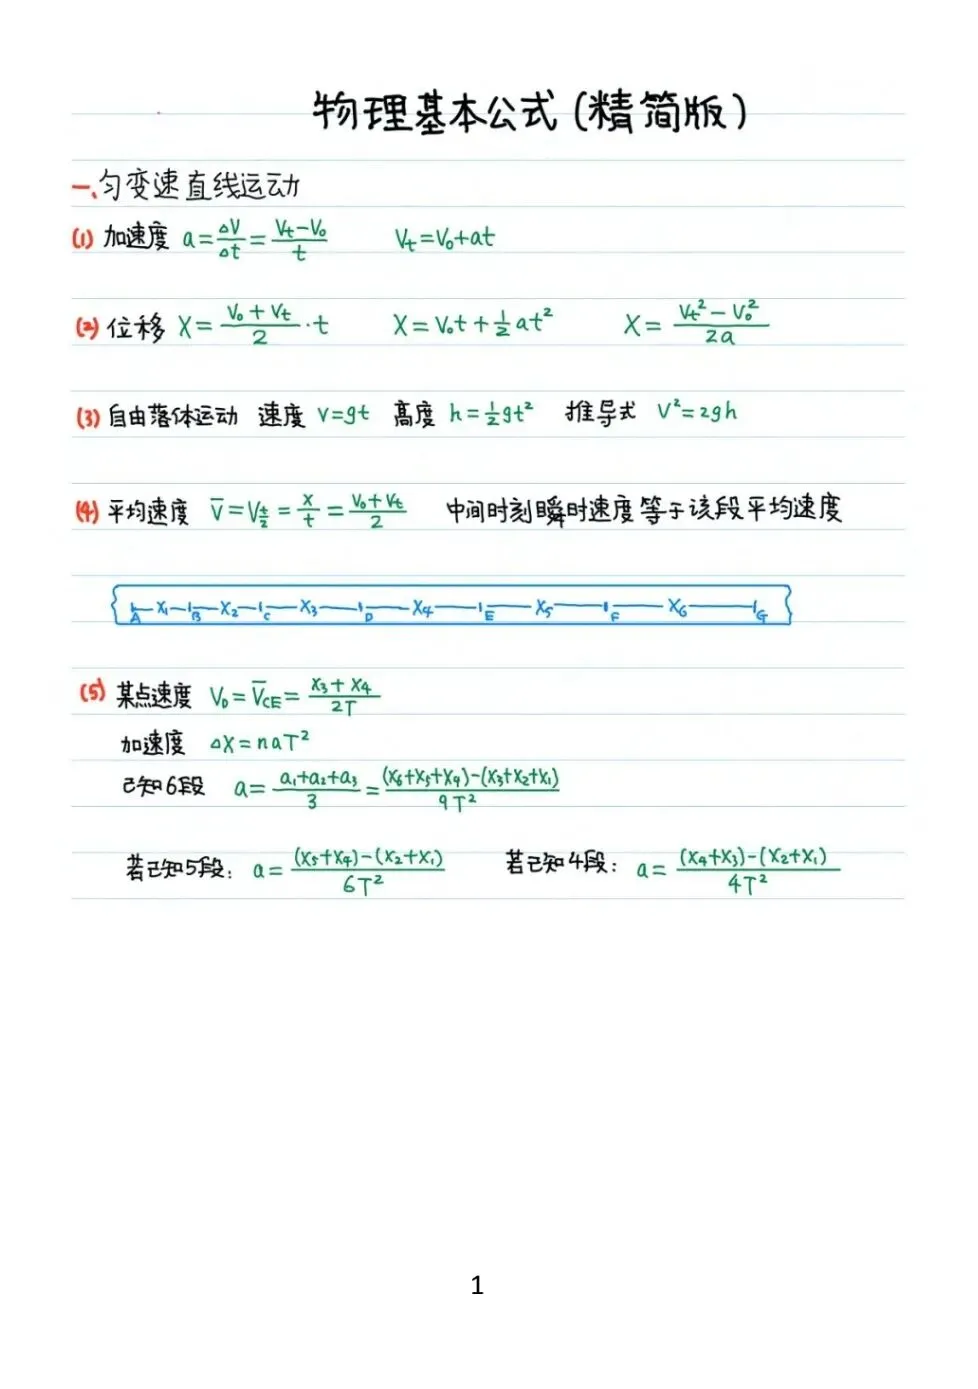 物理基本公式(精简版)
一、匀变速直线运动
(1) 加速度 a=△V/△t=(Vt-V₀)/t Vt=V₀+at
(2) 位移 X=(V₀+Vt)/2·t X=V₀t+½at² X=(Vt²-V₀²)/2a
(3) 自由落体运动 速度 V=gt 高度 h=½gt² 推导式 V²=2gh
(4) 平均速度 V̅=V_(t/2)=x/t=(V₀+Vt)/2 中间时刻瞬时速度等于该段平均速度
A X₁ B X₂ C X₃ D X₄ E X₅ F X₆ G
(5) 某点速度 V_D=V̅_CE=(X₃+X₄)/2T
加速度 △X=naT²
已知6段 a=(a₁+a₂+a₃)/3=((X₆+X₅+X₄)-(X₃+X₂+X₁))/9T²
若已知5段: a=((X₅+X₄)-(X₂+X₁))/6T² 若已知4段: a=((X₄+X₃)-(X₂+X₁))/4T²
1